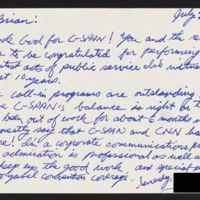 July
Brian:
God for C-SPAN! You and the
to be congratulated for performing
acts of public service I've witnes
10 years.
call-in programs are outstanding
C-SPAN's balance is right in th
been out of work for about 6 months
say that C-SPAN and CNN ha
I'm a corporate communications p
admiration is professional as well a
keep up the good work, and special
convention coverage.